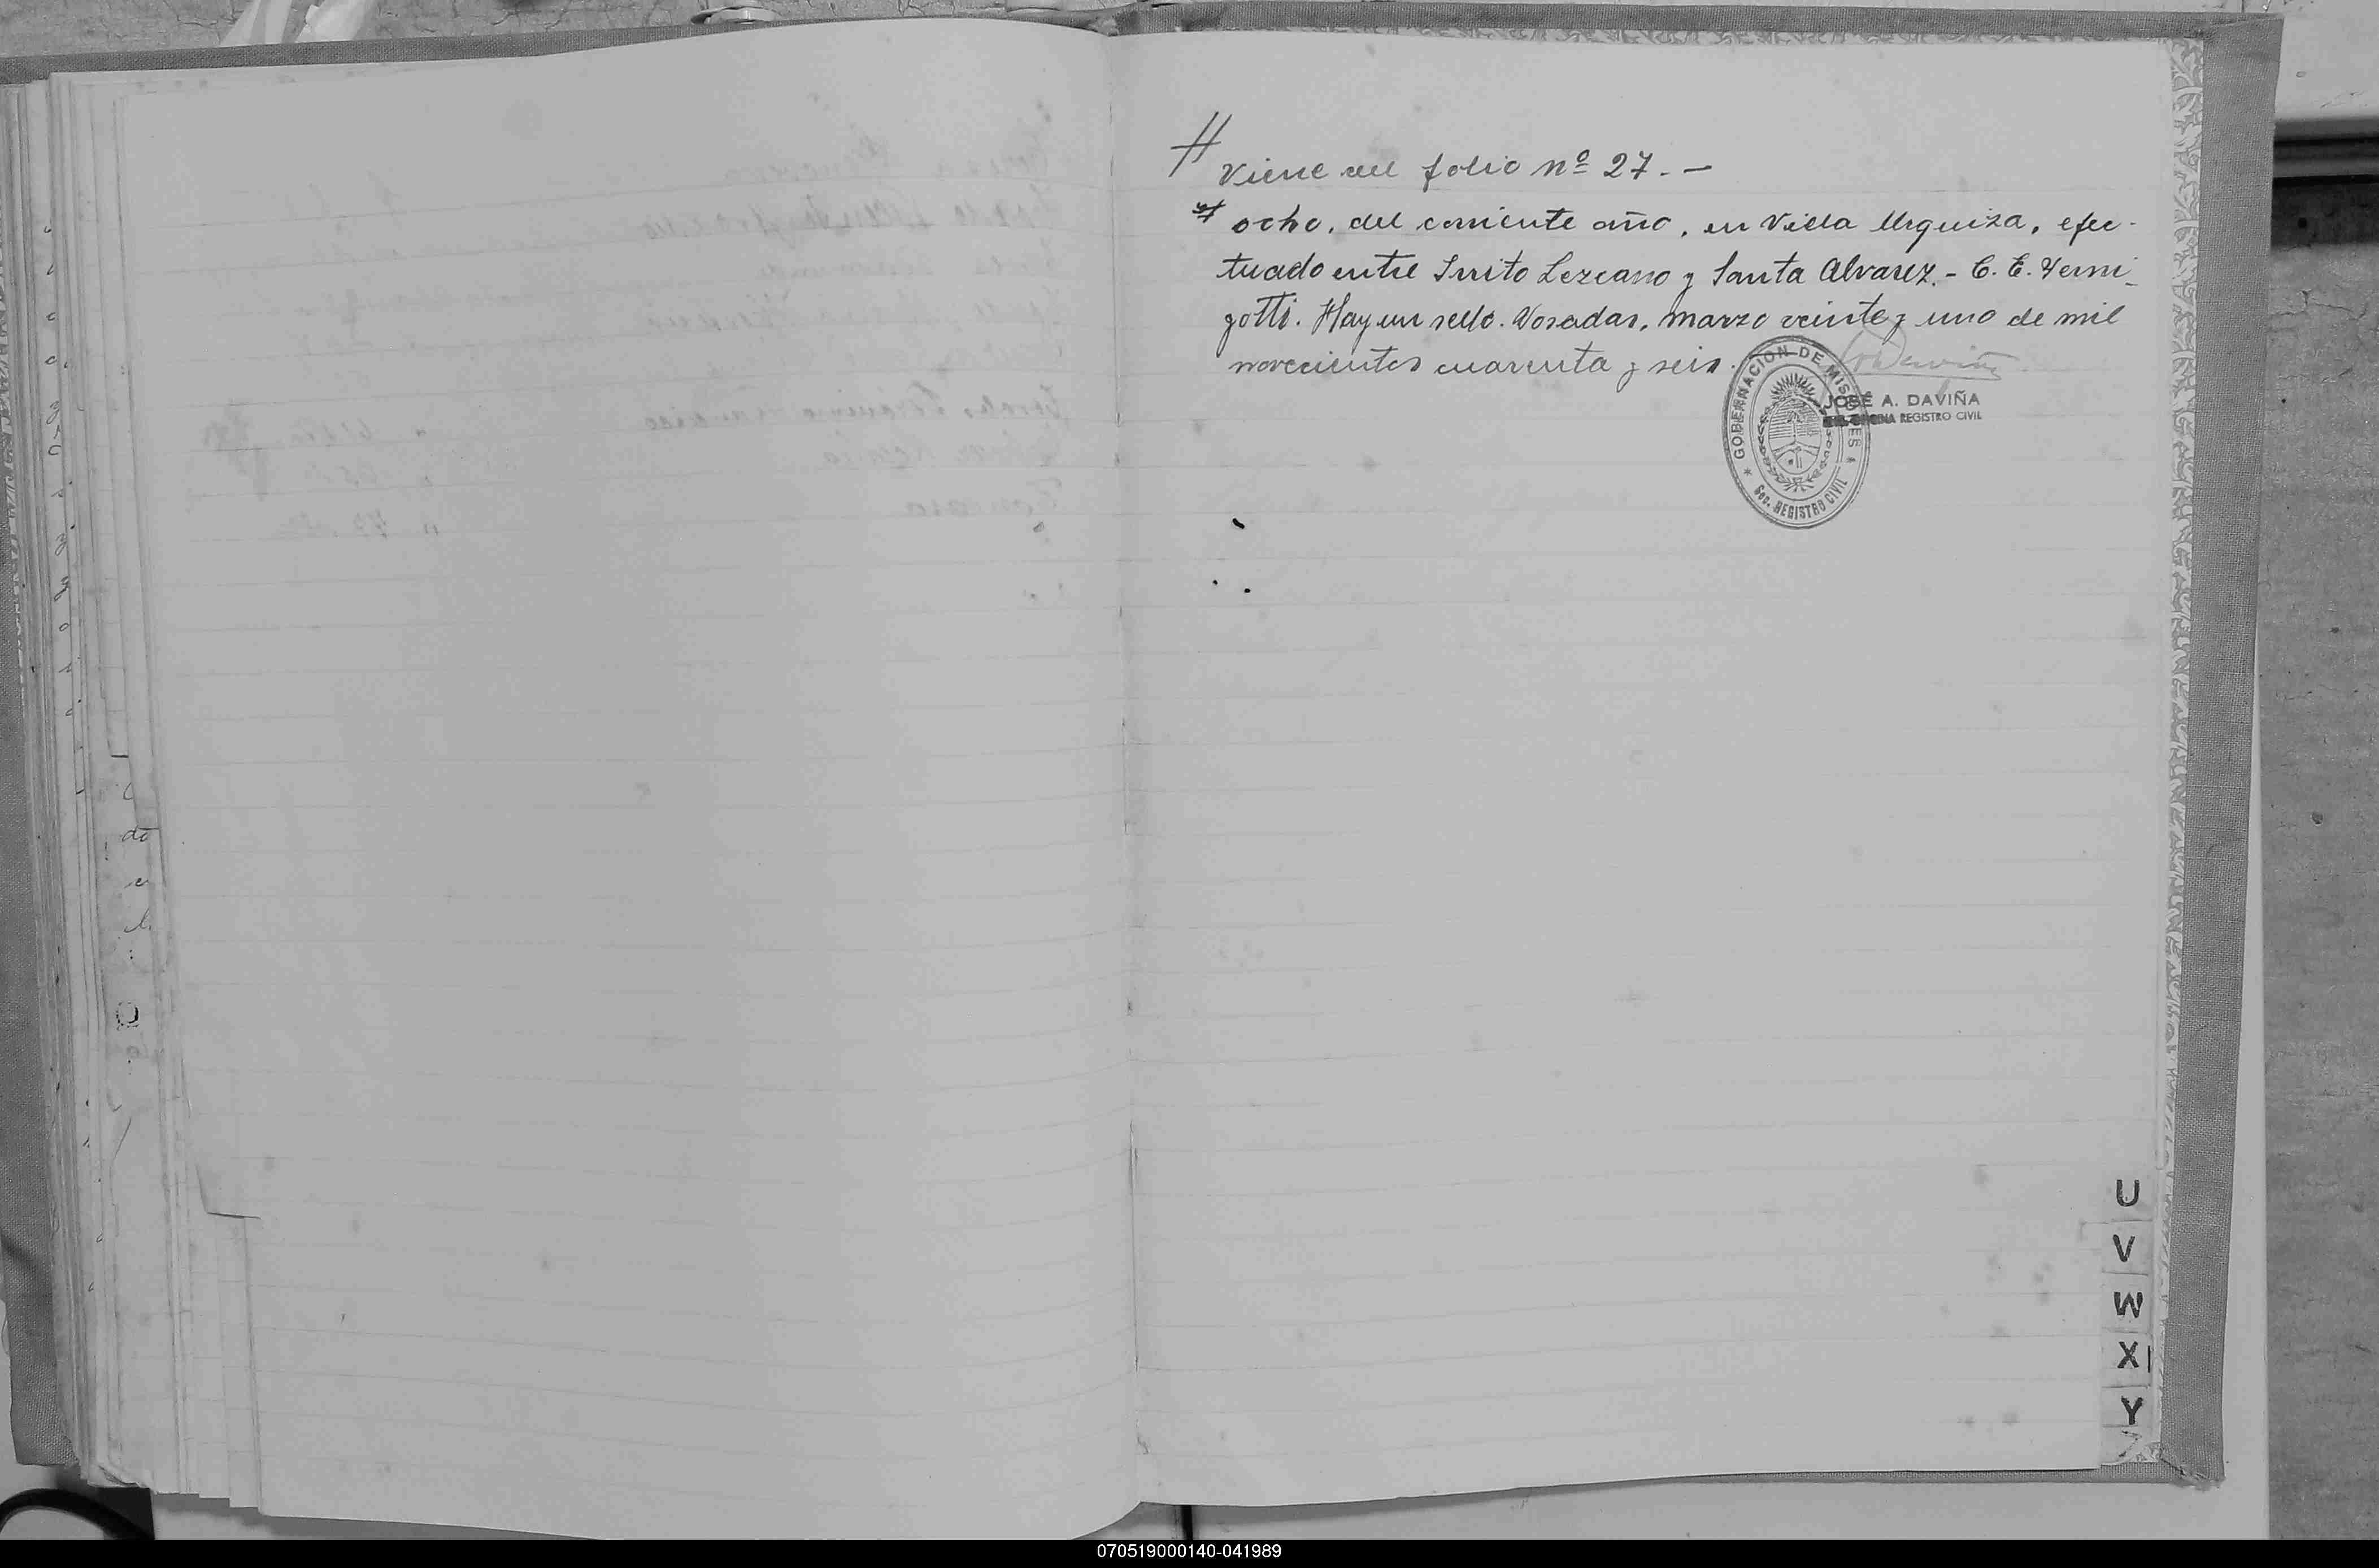 Viene del folio nº 27. -
ocho, del corriente año, en Villa Urquiza, efec-
tuado entre Lezcano y Santa Alvarez. - C. E. Verni-
gotti. Hay un sello. Posadas, marzo veinte y uno de mil
novecientos cuarenta y seis.
GOBERNACION DE MISIONES
Sec. REGISTRO CIVIL
JOSÉ A. DAVIÑA
OFICINA REGISTRO CIVIL
U
V
W
X
Y
Z
070519000140-041989